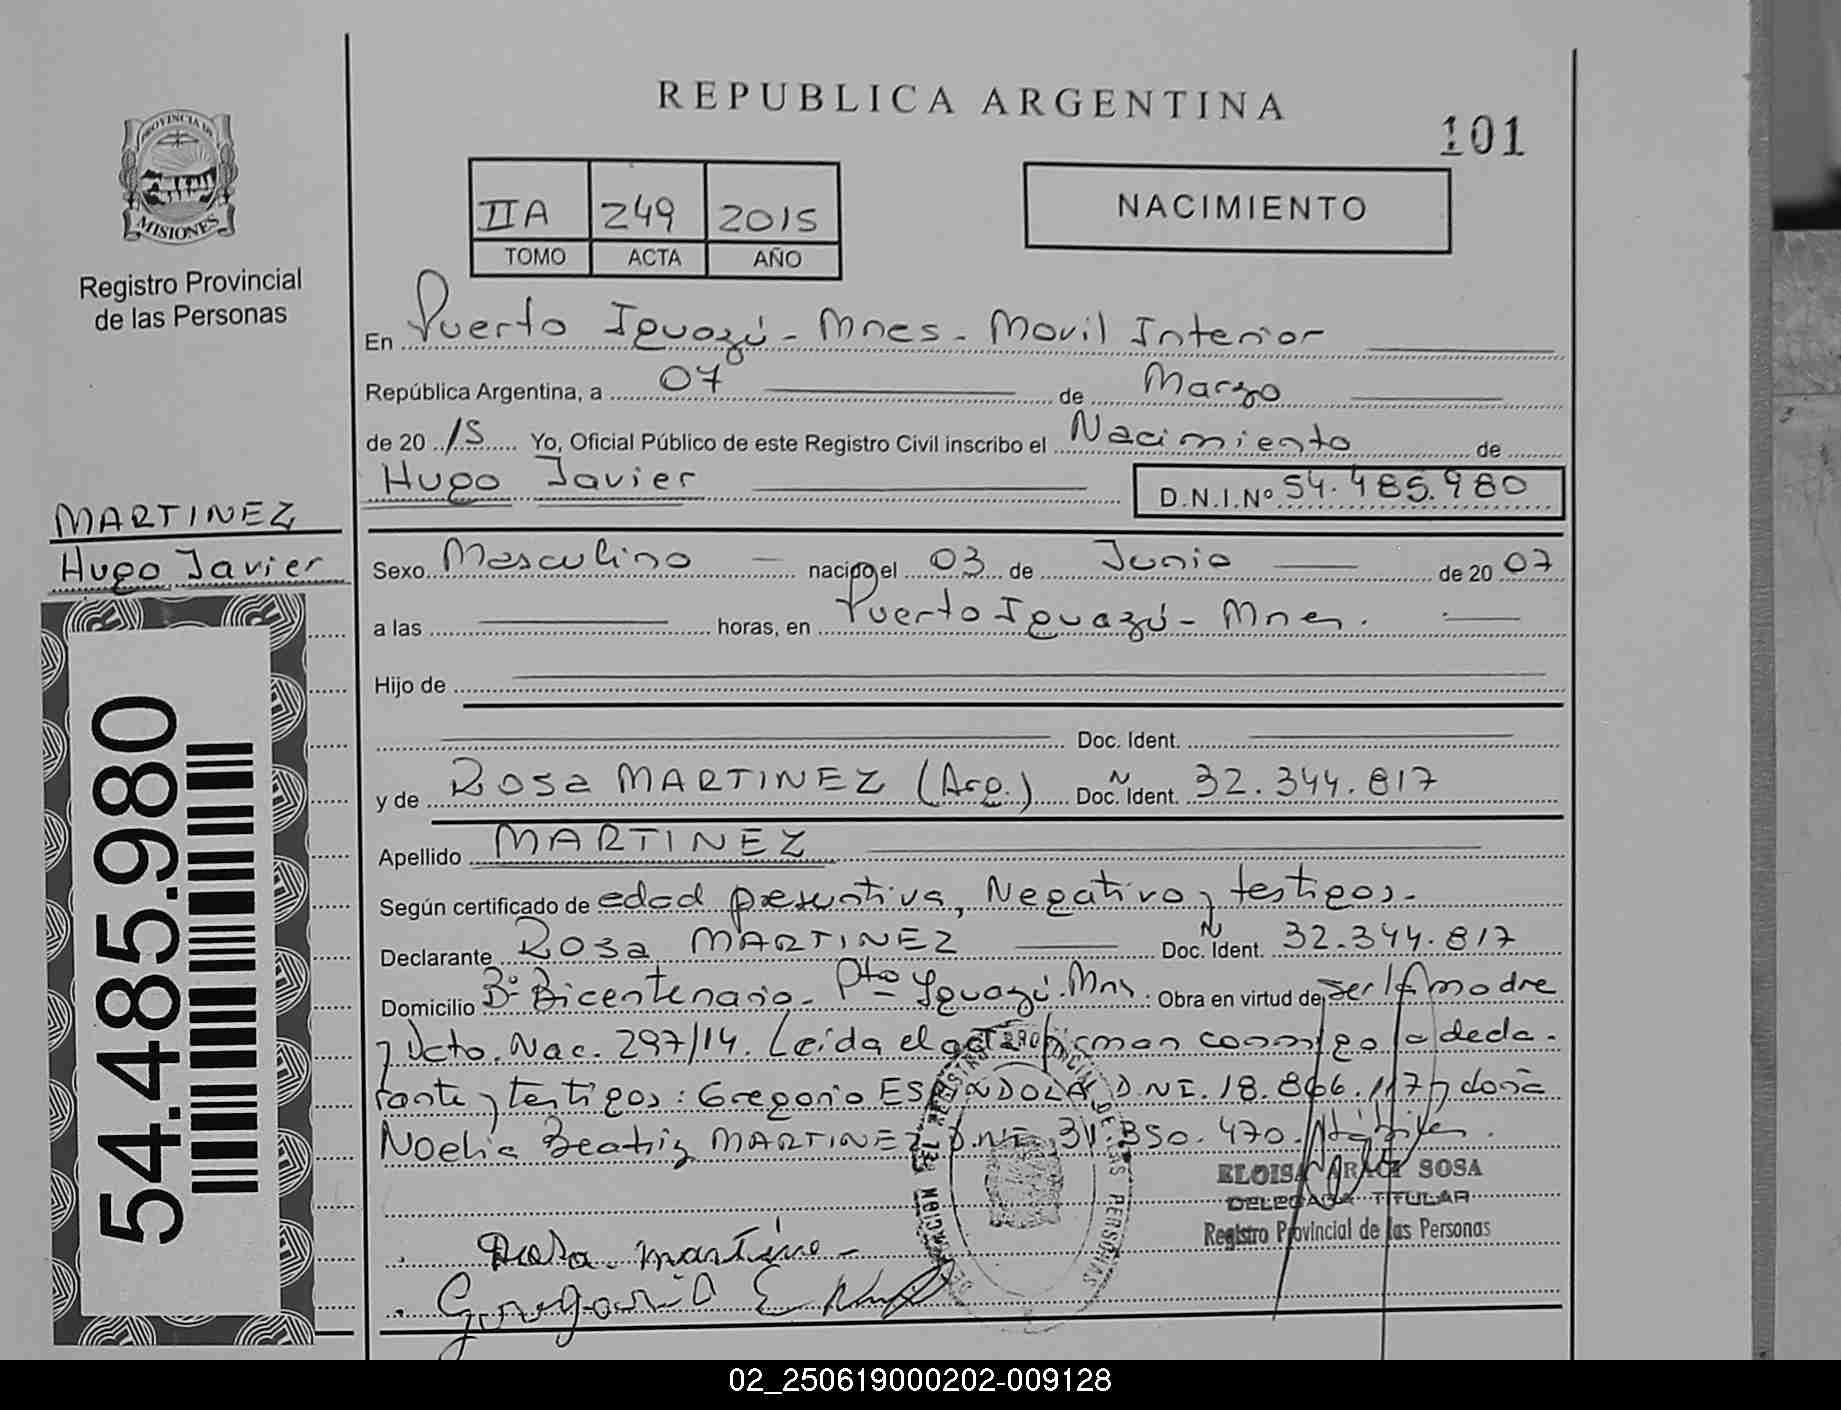 REPUBLICA ARGENTINA
101
PROVINCIA DE
MISIONES
Registro Provincial
de las Personas
IIA 249 2015
TOMO ACTA AÑO
NACIMIENTO
En Puerto Iguazú - Mnes - Movil Interior
República Argentina, a 07 de Marzo
de 20 15 Yo, Oficial Público de este Registro Civil inscribo el Nacimiento de
Hugo Javier
D.N.I.Nº 54.485.980
MARTINEZ
Hugo Javier
Sexo Masculino nacido el 03 de Junio de 20 07
a las horas, en Puerto Iguazú - Mnes.
Hijo de
Doc. Ident.
y de Rosa MARTINEZ (Arg.) Doc. Ident. 32.344.817
Apellido MARTINEZ
Según certificado de edad presuntiva, Negativo y testigos.
Declarante Rosa MARTINEZ Doc. Ident. 32.344.817
Domicilio Bº Bicentenario - Pto Iguazú. Mns. Obra en virtud de ser la madre
y Dcto. Nac. 297/14. Leída el acta firman conmigo la decla-
rante y testigos: Gregorio ESPINDOLA D.N.I. 18.866.117 y doña
Noelia Beatriz MARTINEZ D.N.I. 31.350.470.
ELOISA ARACI SOSA
DELEGADA TITULAR
Registro Provincial de las Personas
Rosa martine
Gregorio E
54.485.980
02_250619000202-009128